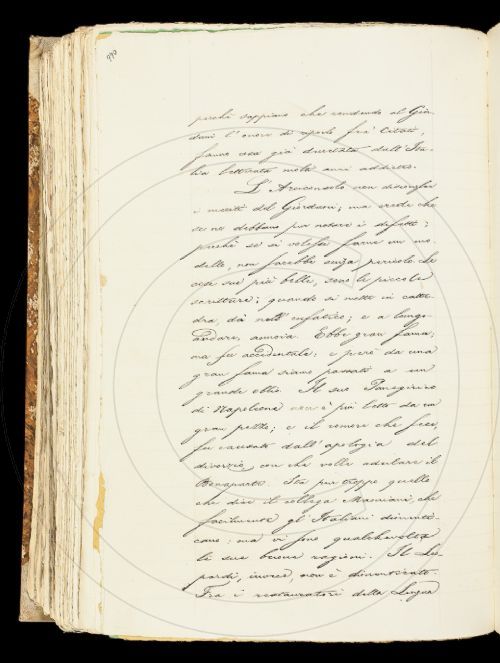 990
perchè sappiano che rendendo al Gior-
dani l'onore di averlo fra' Citati,
fanno cosa già decretata dall'Ita-
lia letterata molti anni addietro.
L'Arciconsolo non disconosce
i meriti del Giordani; ma crede che
se ne debbano pur notare i difetti;
perchè se si volesse farne un mo-
dello, non sarebbe senza pericolo. Le
cose sue più belle, sono le piccole
scritture; quando si mette in catte-
dra, dà nell'enfatico; e a lungo
andare, annoia. Ebbe gran fama,
ma fu accidentale: e però da una
gran fama siamo passati a un
grande oblio. Il suo Panegirico
di Napoleone non è più letto da un
gran pezzo; e il romore che fece,
fu causato dall'apologia del
divorzio, con che volle adulare il
Bonaparte. Sta pur troppo quello
che dice il collega Mamiani, che
facilmente gl'Italiani dimenti-
cano: ma vi sono qualchevolta
le sue buone ragioni. Il Leo-
pardi, invece, non è dimenticato.
Fra i restauratori della Lingua